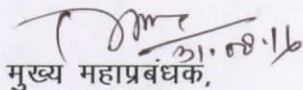 31.08.16
मुख्य महाप्रबंधक,